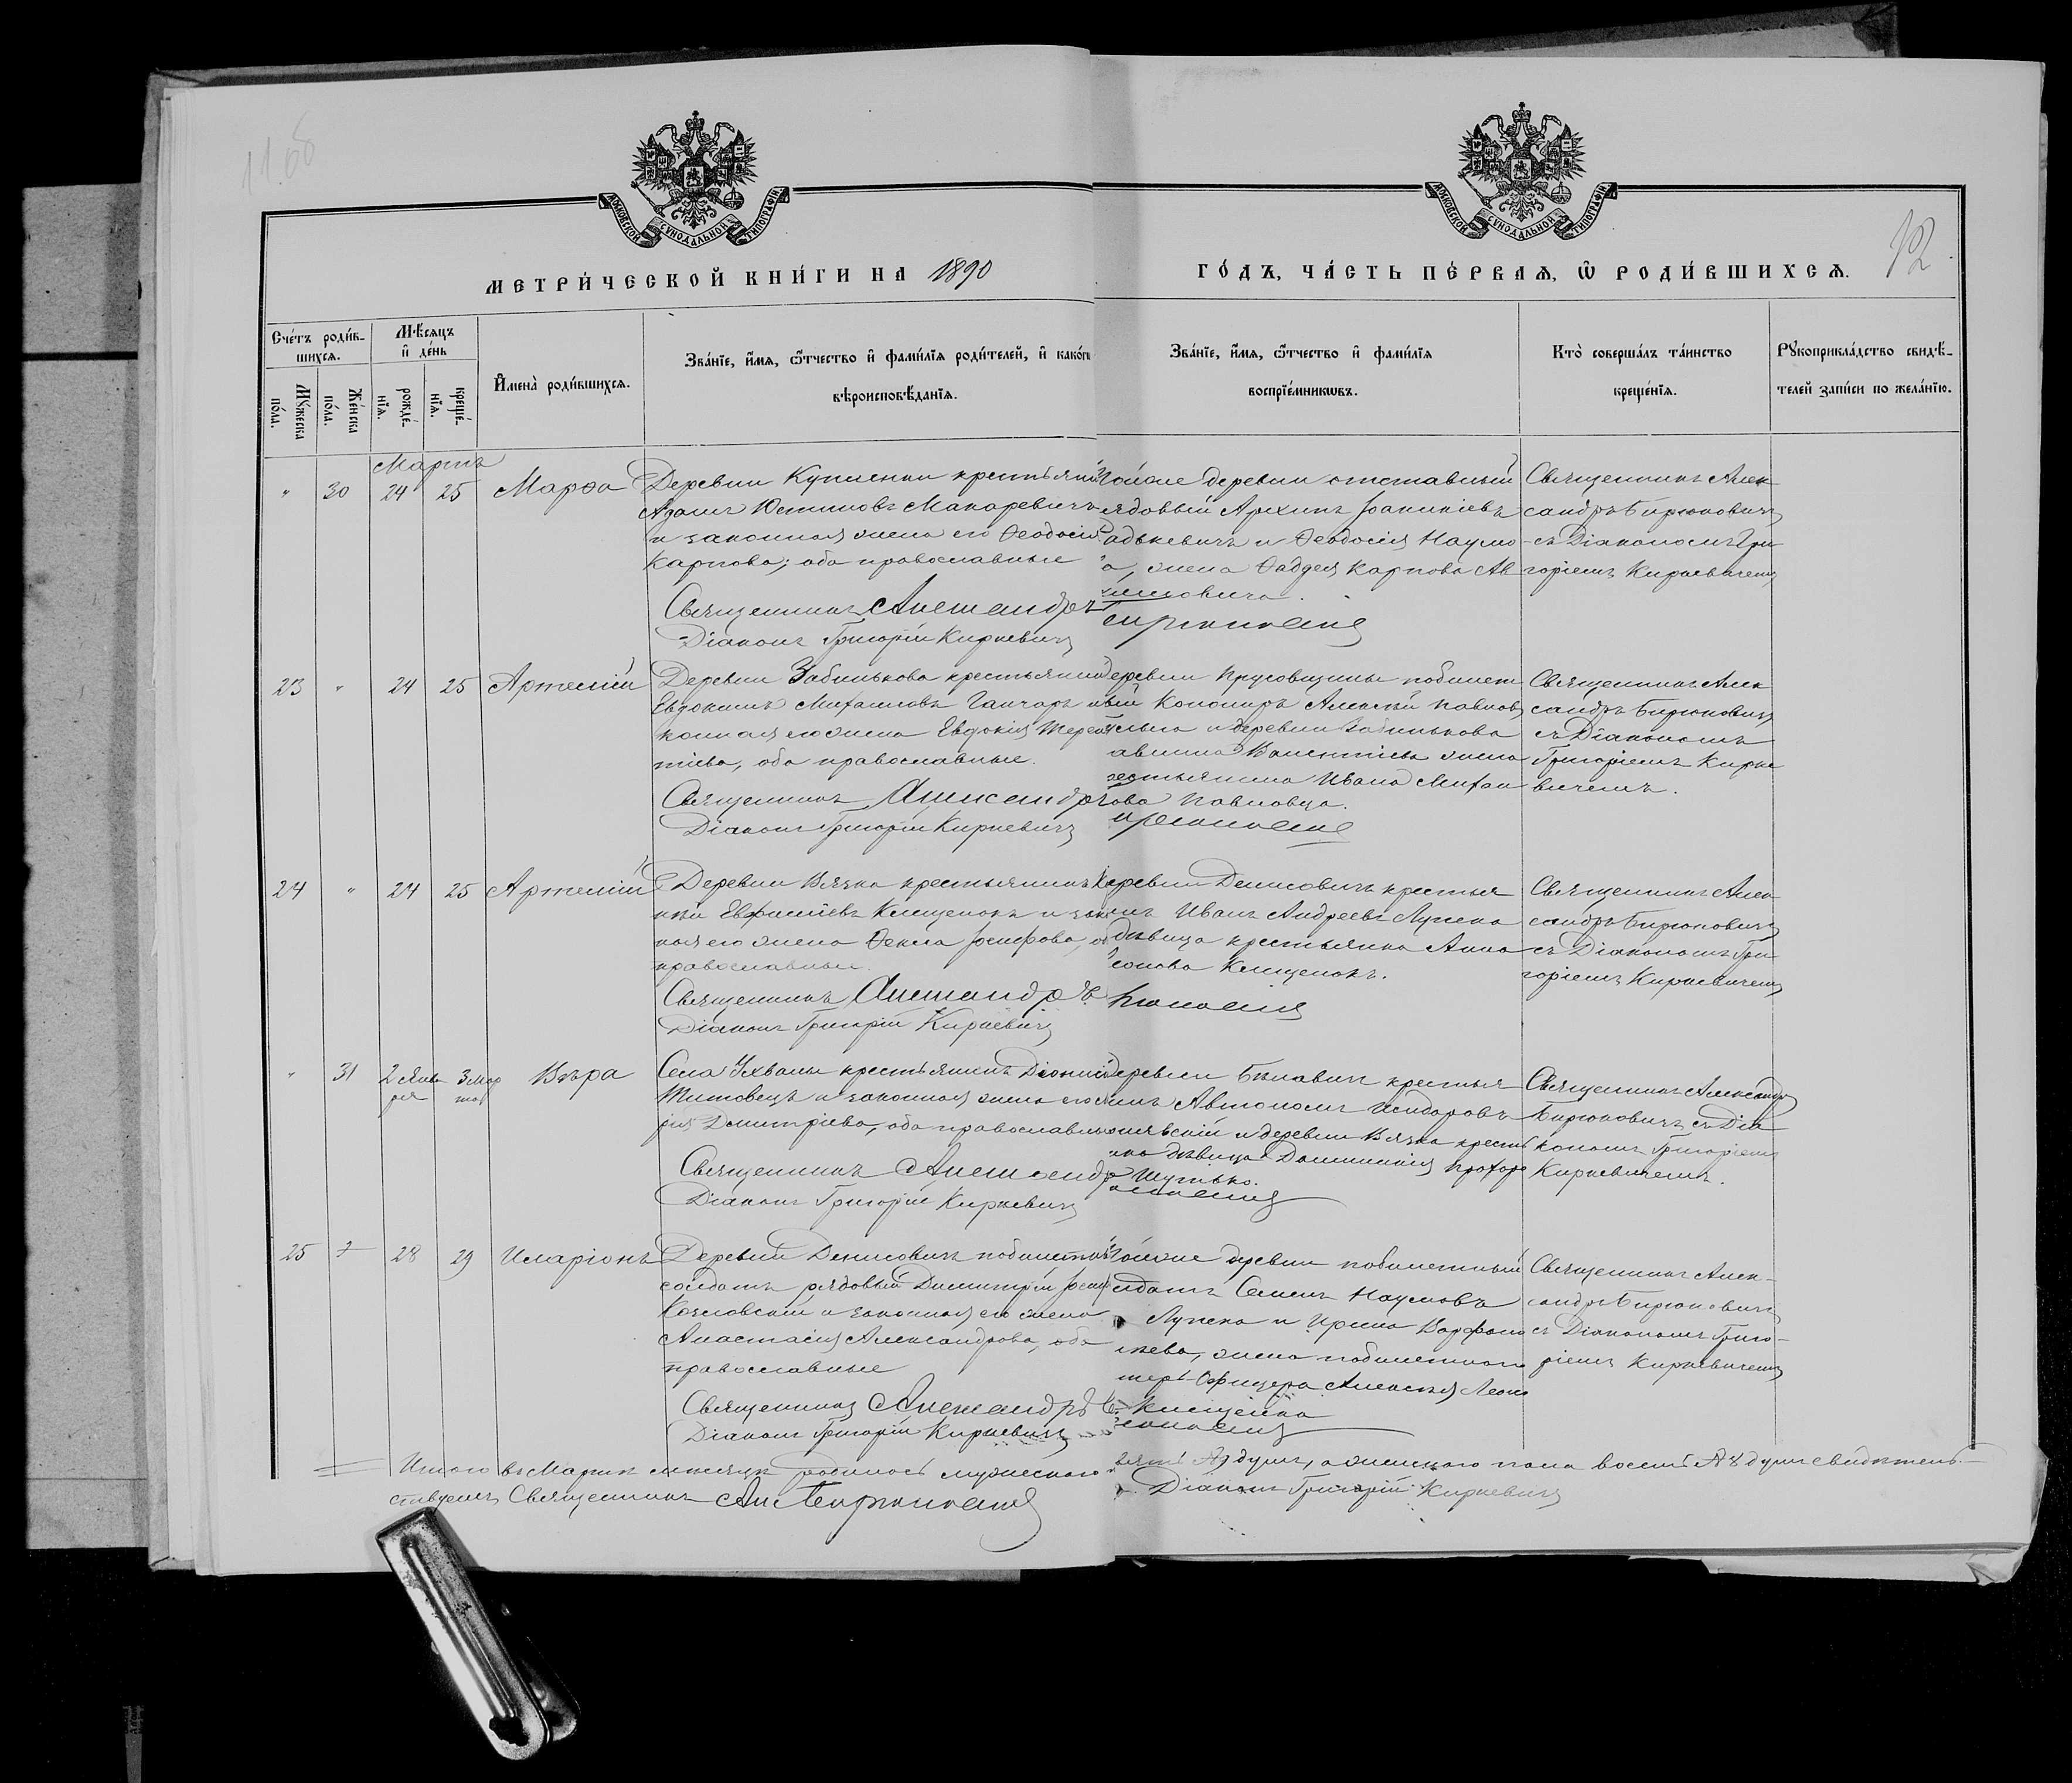 11об
МОСКОВСКОЙ СѴНОДАЛЬНОЙ ТИПОГРАФІИ
МОСКОВСКОЙ СѴНОДАЛЬНОЙ ТИПОГРАФІИ
12
МЕТРИ́ЧЕСКОЙ КНИ́ГИ НА 1890
ГО́ДЪ, ЧА́СТЬ ПЕ́РВАЯ, Ѡ РОДИ́ВШИХСЯ.
Сче́тъ роди́в-
шихся.
Мꙋ́жеска
по́ла.
Же́нска
по́ла.
Мѣ́сяцъ
и҆ де́нь
рожде́-
нїя.
креще́-
нїя.
И҆мена̀ роди́вшихся.
Зва́нїе, и҆́мя, ѻ҆́тчество и҆ фами́лїя роди́телей, и҆ како́гѡ
вѣроисповѣ́данїя.
Зва́нїе, и҆́мя, ѻ҆́тчество и҆ фами́лїя
воспрїе́мникѡвъ.
Кто̀ соверша́лъ та́инство
креще́нїя.
Рꙋкоприкла́дство свидѣ́-
телей за́писи по жела́нїю.
Мартъ
" 30 24 25 Марѳа
Деревни Купленки крестьянинъ
Адамъ Юстиновъ Макаревичъ
и законная жена его Ѳеодосія
Карпова; оба православные
Священникъ Александръ Бирюковичъ
Діаконъ Григорій Киркевичъ
Тойже деревни отставный
рядовый Архипъ Іоанникіевъ
и Ѳеодосія Наумо
а, жена Ѳаддея Карпова
Священникъ Алек-
сандръ Бирюковичъ
съ Діакономъ Гри
горіемъ Киркевичемъ
23 " 24 25 Артемій
Деревни Забинькова крестьянин
Евдокимъ Михаиловъ Ганчаръ и
конная его жена Евдокія Терен
тіева, оба православные.
Священникъ Александръ
Діаконъ Григорій Киркевичъ
Деревни Прусовщины побилет
ный Алексѣй Павловъ
и деревни Забинькова
жена
крестьянина Ивана Михаи
лова Павловца.
Священникъ Алек
сандръ Бирюковичъ
съ Діакономъ
Григоріемъ Кирке
вичемъ.
24 " 24 25 Артемій
Деревни Вязка крестьянинъ
Евфиміевъ Клещенокъ и закон
ная его жена Ѳекла Іосифова, об
православные.
Священникъ Александръ Бирюковичъ
Діаконъ Григорій Киркевичъ
Деревни Денисовичъ крестья
нинъ Иванъ Андреевъ Лупека
дѣвица крестьянка Анна
Леонова Клещенокъ.
Священникъ Алек-
сандръ Бирюковичъ
съ Діакономъ Гри-
горіемъ Киркевичемъ
" 31 2 Янва 3 Мар Вѣра
ря та
Села Ухвалы крестьянинъ Діонисій
Титовецъ и законная жена его
рія Димитріева, оба православны
Священникъ Александръ
Діаконъ Григорій Киркевичъ
Деревни крестья
нинъ Автономъ Исидоровъ
и деревни Вязка кресть
янка дѣвица Домникія Прохоро
Шутько.
Священникъ Александръ
Бирюковичъ съ Діа
кономъ Григоріемъ
Киркевичемъ.
25 28 29 Иларіонъ
Деревни Денисовичъ побилетный
солдатъ рядовый Димитрій Іоси
Козловскій и законная его жена
Анастасія Александрова, оба
православные
Священникъ Александръ
Діаконъ Григорій Киркевичъ
Тойже деревни побилетный
солдатъ Семенъ Наумовъ
Лупека и Ирина Варфоло
мѣева, жена побилетнаго
Унтеръ-Офицера Алексѣя Леон
Клещенка
Священникъ Алек-
сандръ Бирюковичъ
съ Діакономъ Григо-
ріемъ Киркевичемъ
Итого въ Мартѣ мѣсяцѣ родилось мужескаго душъ, а женскаго пола восемь 8 душъ свидѣтель-
ствуемъ Священникъ Ал. Бирюковичъ Діаконъ Григорій Киркевичъ